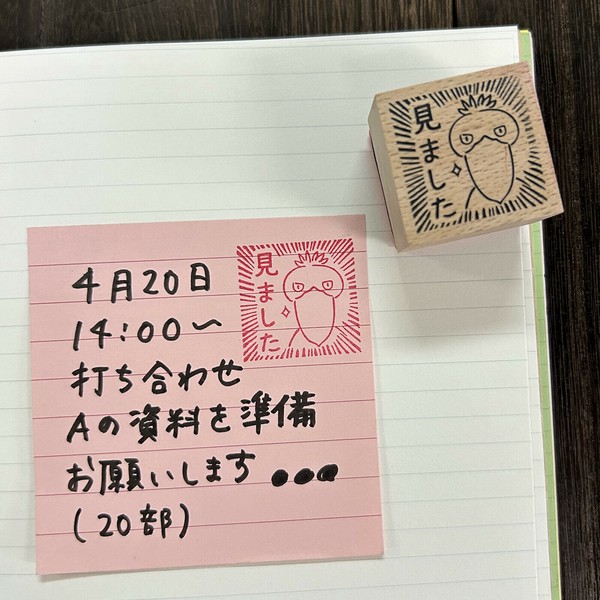 見ました
見ました
4月20日
14:00〜
打ち合わせ
Aの資料を準備
お願いします
(20部)